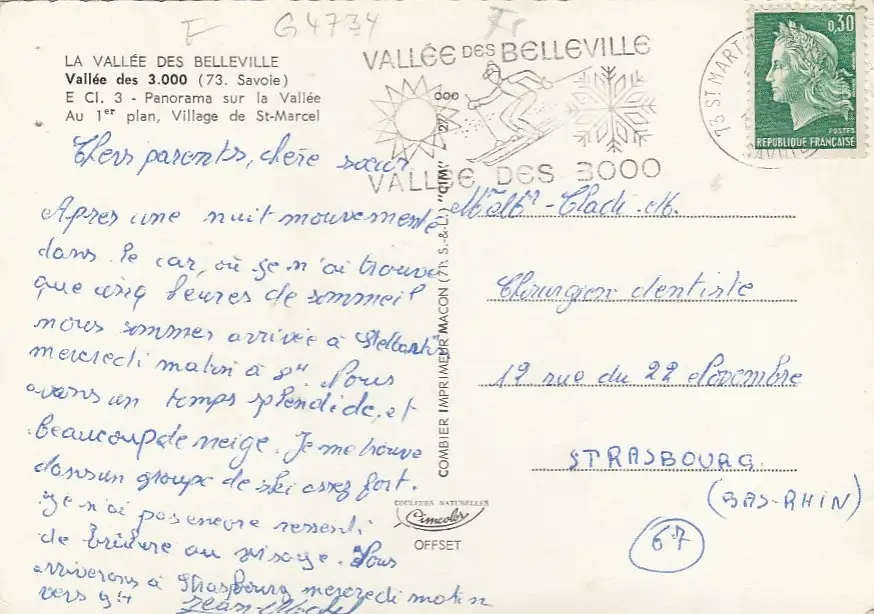 F G4734 Fr
LA VALLÉE DES BELLEVILLE
Vallée des 3.000 (73. Savoie)
E Cl. 3 - Panorama sur la Vallée
Au 1er plan, Village de St-Marcel
VALLÉE DES BELLEVILLE
VALLÉE DES 3000
73 ST MART
0,30
POSTES
REPUBLIQUE FRANÇAISE
Chers parents, chère sœur
Apres une nuit mouvementé
dans le car, où je n'ai trouvé
que cinq heures de sommeil
nous sommes arrivée à
mercredi matin à 8H. Nous
avons un temps splendide, et
beaucoup de neige. Je me trouve
dans un groupe de ski assez fort.
Je n'ai pas encore ressenti
de brûlure au visage. Nous
arriverons à Strasbourg mercredi matin
vers 9H
COMBIER IMPRIMEUR MACON (71. S.-&-L.) "CIM"
COULEURS NATURELLES
Cimcolor
OFFSET
Chirurgien dentiste
12 rue du 22 Novembre
STRASBOURG.
(BAS-RHIN)
67